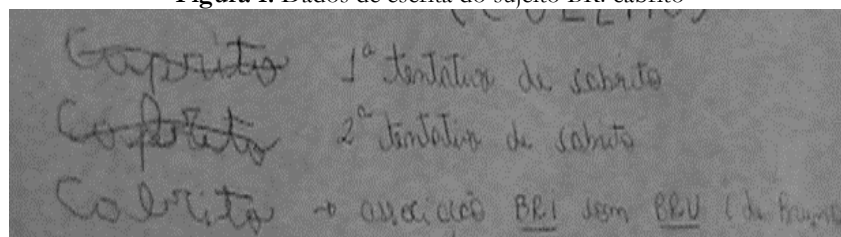 Figura 1. Dados de escrita do sujeito BR: cabrito
(COELHO)
Caprito 1ª tentativa de cabrito
2ª tentativa de cabrito
Cabrito → associação BRI sem BRU (de Bruno